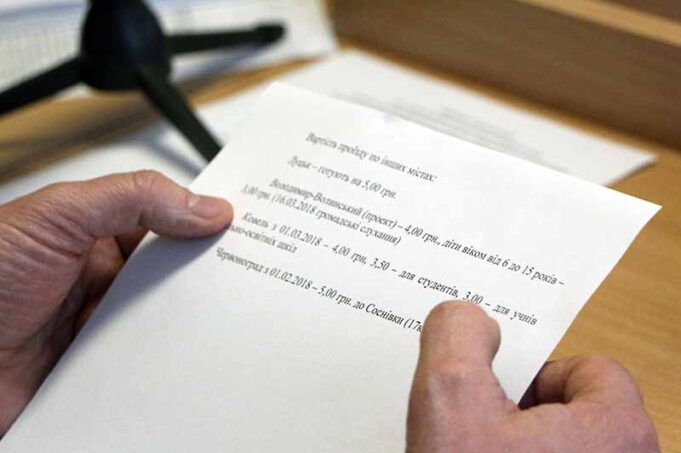 Вартість проїзду по інших містах:
Луцьк – готують на 5,00 грн.
Володимир-Волинський (проект) – 4,00 грн., діти віком від 6 до 15 років –
3,00 грн. (16.03.2018 громадські слухання)
Ковель з 01.03.2018 – 4,00 грн, 3,50 – для студентів, 3,00 – для учнів
льно-освітніх шкіл
Червоноград з 01.02.2018 – 5,00 грн. до Соснівки (17к